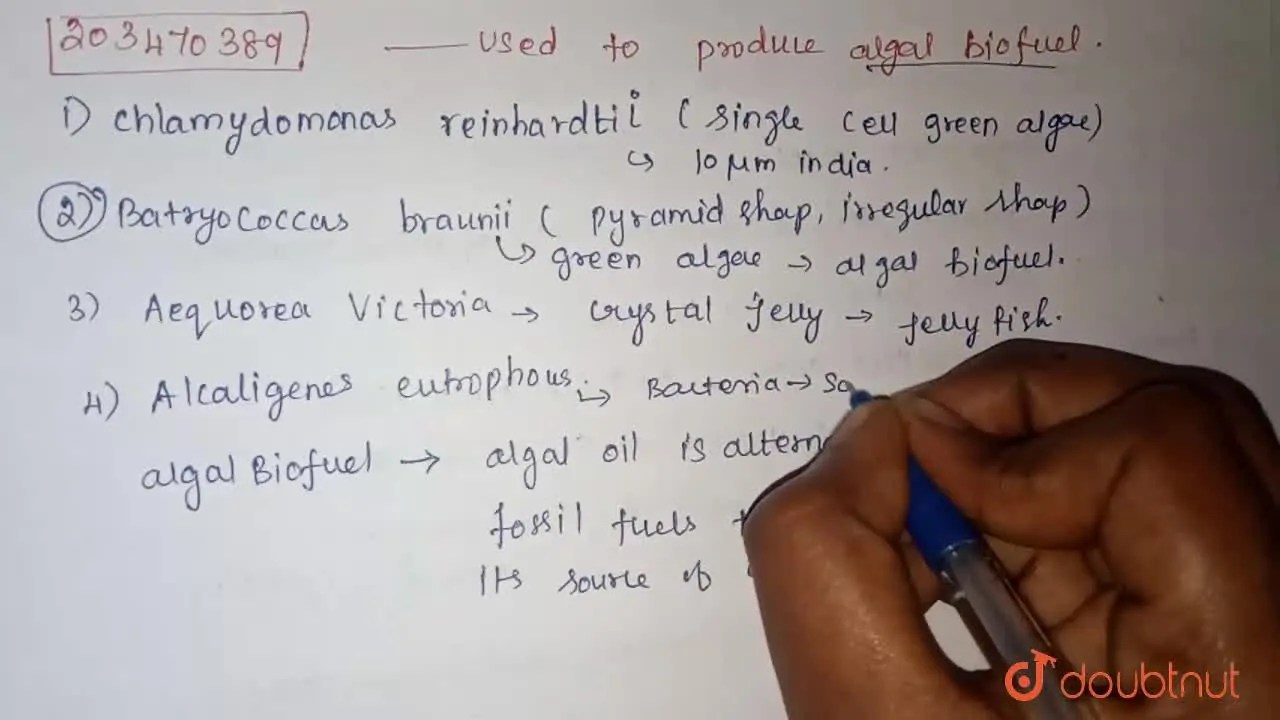 203470389 —— used to produce algal Biofuel.
1) Chlamydomonas reinhardtii (single cell green algae)
↳ 10 μm india.
2) Batryococcas braunii ( pyramid shap, irregular shap)
↳ green algae → algal biofuel.
3) Aequorea Victoria → Crystal Jelly → Jelly fish.
4) Alcaligenes eutrophous ↳ Bacteria →
algal Biofuel → algal oil is
fossil fuels
Its source of
doubtnut